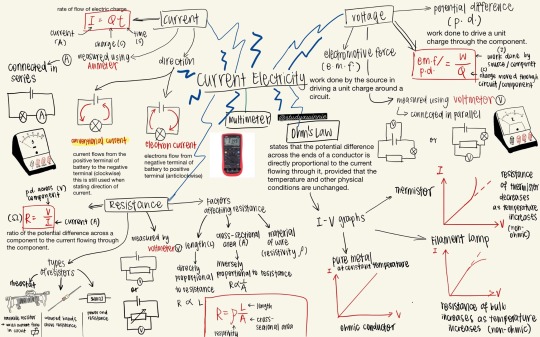 rate of flow of electric charge
I = Qt
current (A)
charge (C)
time (s)
current
measured using
Ammeter
direction
connected in
series
A
conventional current
current flows from the
positive terminal of
battery to the negative
terminal (clockwise)
this is still used when
stating direction of
current.
electron current
electrons flow from
negative terminal of
battery to positive
terminal (anticlockwise)
Current Electricity
multimeter
voltage
potential difference
(p.d.)
work done to drive a unit
charge through the component.
electromotive force
(e.m.f)
work done by the source in
driving a unit charge around a
circuit.
em.f/
p.d.
= W
Q
work done by
source/component
charge moved through
circuit/component
measured using voltmeter V
connected in parallel
or
Ohm's Law
states that the potential difference
across the ends of a conductor is
directly proportional to the current
flowing through it, provided that the
temperature and other physical
conditions are unchanged.
I-V graphs
thermistor
I
V
resistance
of thermistor
decreases
as temperature
increases
(non-
ohmic)
filament lamp
I
V
resistance of bulb
increases as temperature
increases (non-ohmic)
pure metal
at constant temperature
I
V
ohmic conductor
Resistance
p.d. across (V)
component
(Ω) R = V
I
current (A)
ratio of the potential difference across a
component to the current flowing through
the component.
types of
resistors
rheostat
measured
by
voltmeter
or
factors
affecting resistance
length (l)
directly
proportional
to resistance
R ∝ L
cross-sectional
area (A)
inversely
proportional to resistance
R ∝ 1
A
material
of wire
(resistivity, ρ)
R = ρ l
A
length
cross-
sectional area
resistivity